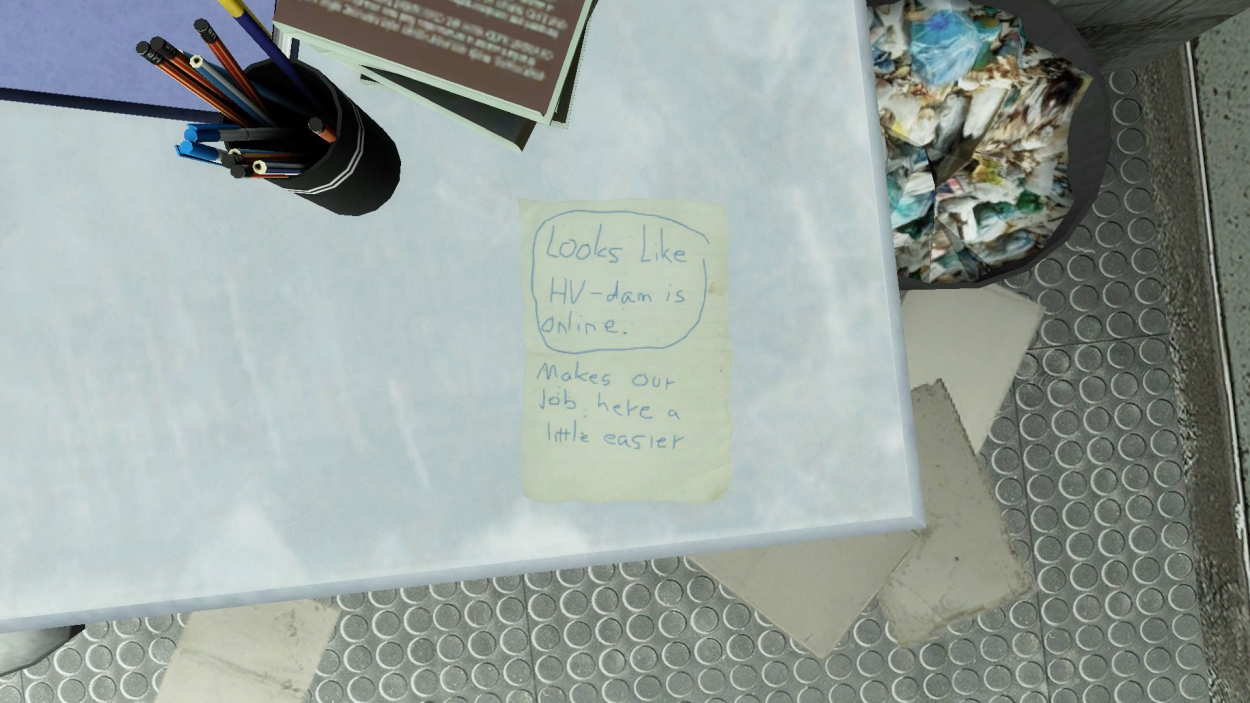 Looks Like
HV-dam is
online.
Makes our
Job here a
little easier